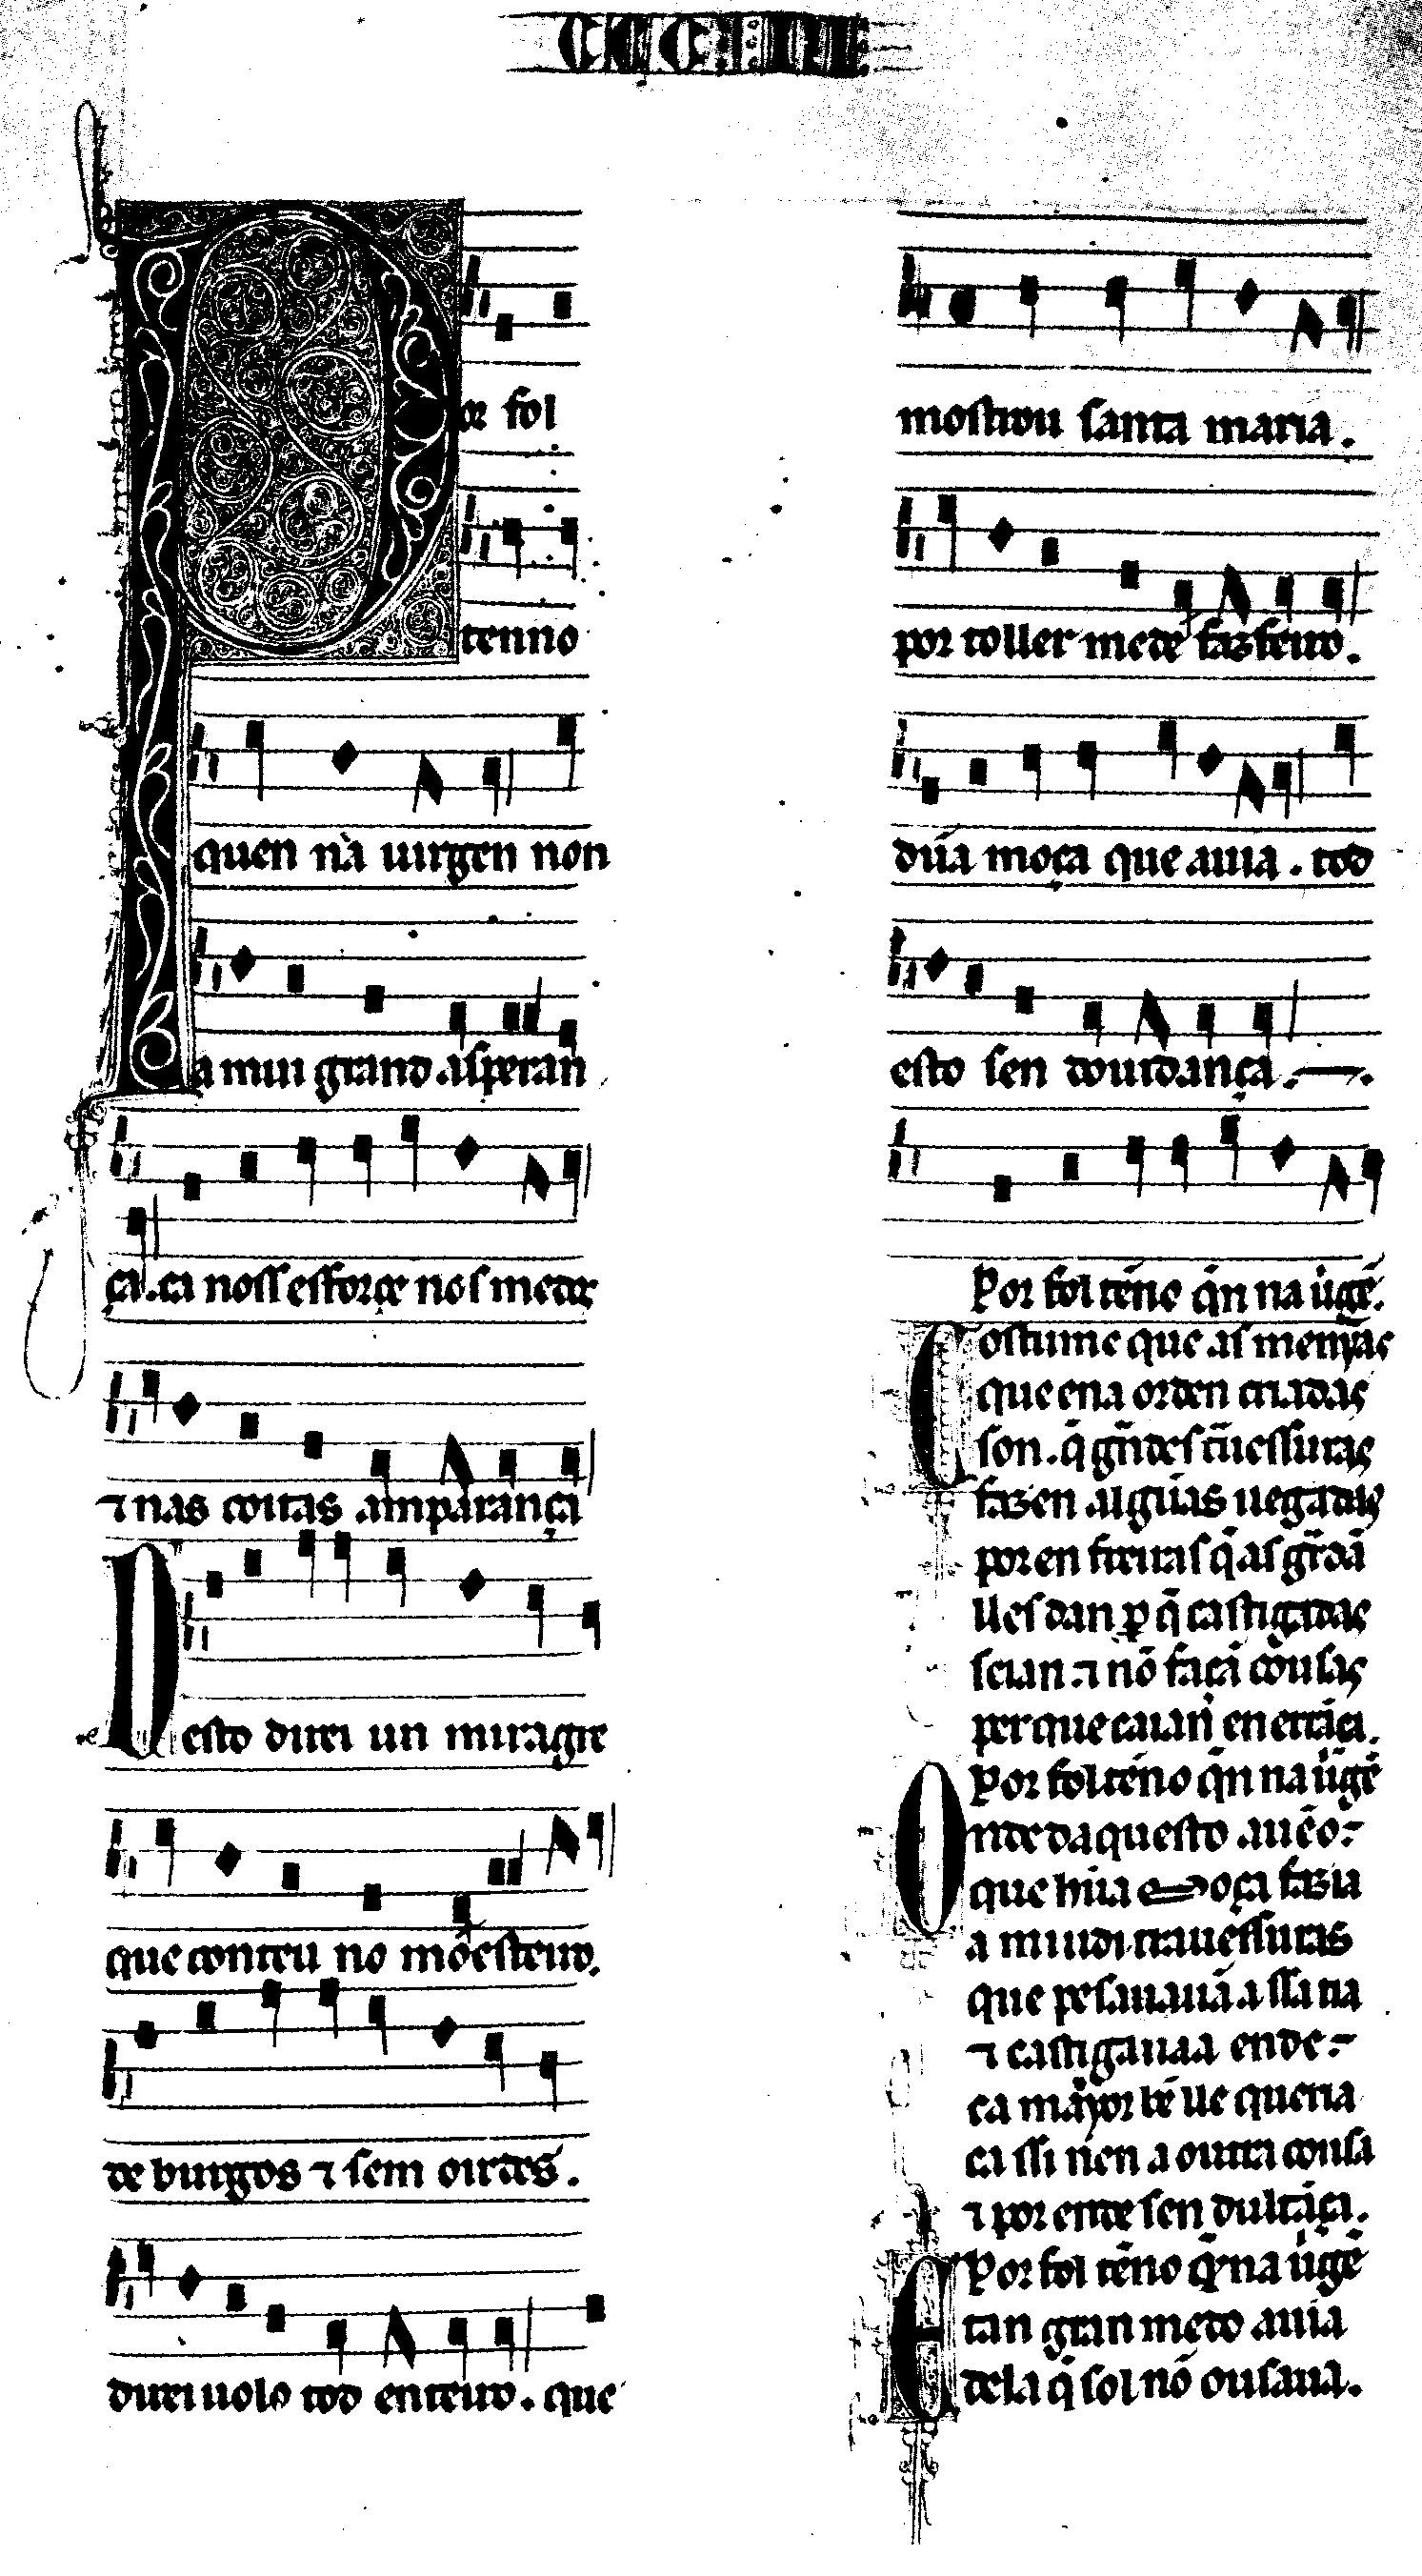 CCC:III
Por fol
tenno
quen na uirgen non
a mui grand asperan
ça. ca noss esforce nos medes
⁊ nas coitas amparança
Desto direi un miragre
que conteu no moesteiro.
de burgos ⁊ sem oirdes.
direi uolo tod enteiro. que
mostrou santa maria.
por toller medε fazfeiro.
dũa moça que auia. tod
esto sen douidança.
Por fol tẽne q̃n na uigẽ.
Costume que as menỹas
que ena orden criadas
son. q̃ gñdes t̃uessuras
fazen algũas uegadas
por en freiras q̃ as gr̃dã
lles dan ꝑ q̃ castigadas
seian ⁊ nõ façã cousas
per que caian en errãça.
Por fol tẽno q̃n na uigẽ
Onde daquesto auẽo
que hũa moça fazia
a miudi trauessuras
que pesauauã assa tia
⁊ castigaua a ende
ca mayor bẽ lle queria
ca ssi nen a outra cousa
⁊ por ende sen dultãça.
Por fol tẽno q̃ na uigẽ
E tan gran medo auia
dela q̃ sol nõ ousaua.